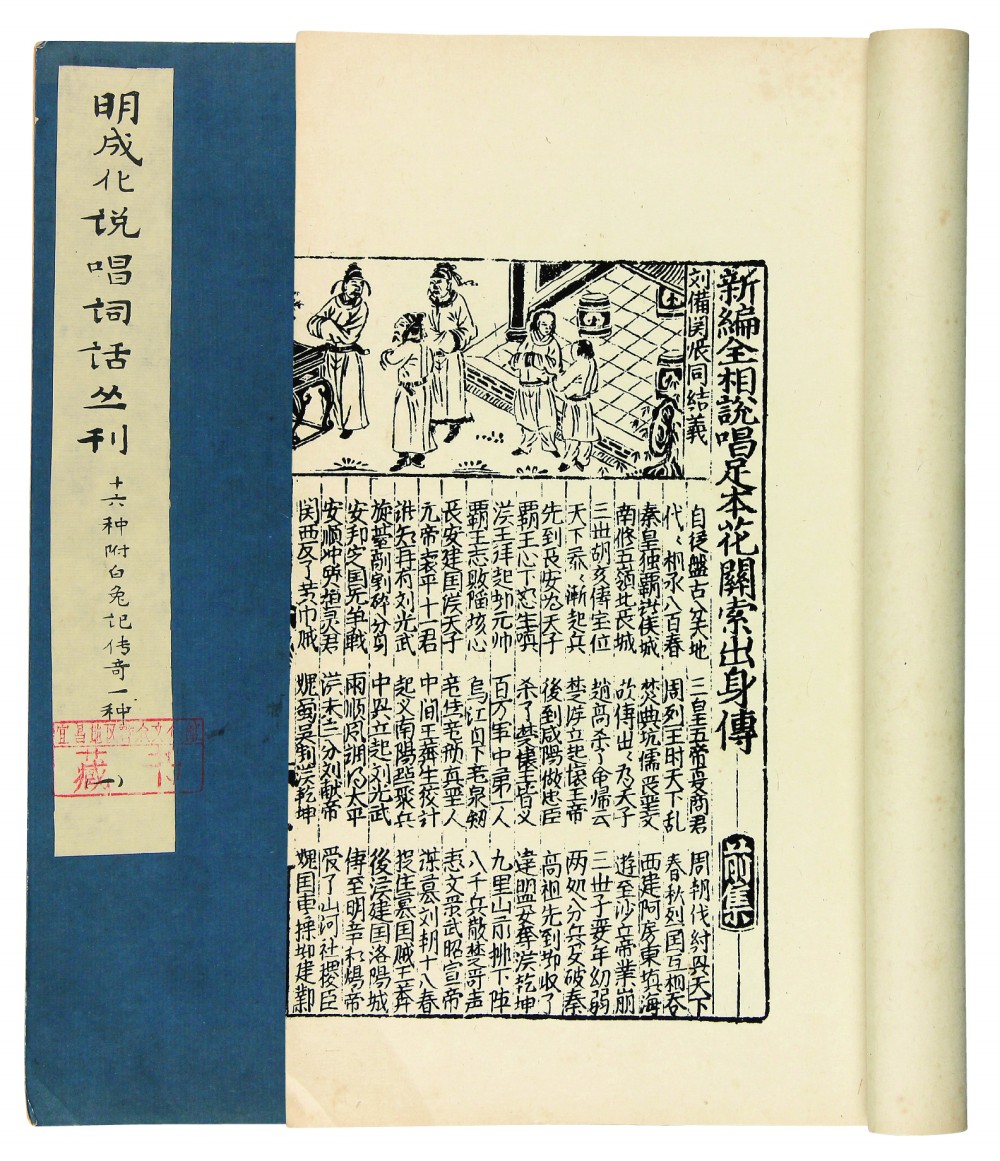 明成化说唱词话丛刊
十六种附白兔记传奇一种
(一)
宜昌地区
藏书
新編全相說唱足本花關索出身傳
前集
刘備関張同結義
自従盤古分天地 三皇五帝夏商君 周朝伐紂興天下
代々相承八百春 周列王时天下乱 春秋列国互相吞
秦皇独霸諸侯城 焚典坑儒喪圣文 西建阿房東填海
南修五嶺北長城 欲傳出々为天子 遊至沙丘帝業崩
三世胡亥傳宝位 趙高杀了命歸云 三世子嬰年幼弱
天下乔々漸起兵 楚漢立起懐王帝 两处分兵去破秦
先到長安为天子 後到咸陽做忠臣 高祖先到却收了
覇王心下怒生嗔 杀了楚懐王皆义 違盟要奪漢乾坤
漢王拜起韩元帅 百万軍中第一人 九里山前排下阵
覇王志敗陥垓心 烏江自下老泉刎 八千兵散楚哥声
長安建国漢天子 真圣人 恵文景武昭宣帝
元帝哀平十一君 中间王莽生狡計 謀篡刘朝十八春
誰知再有刘光武 起义南陽聚兵 捉住篡国贼王莽
剐割碎分身 中兴立起刘光武 後漢建国洛陽城
安邦定国无争戰 雨順風調为太平 傳至明章和殤帝
安順冲質桓灵君 漢末三分刘献帝 愛了山河社稷臣
関西反了黄巾贼 魏蜀吴割漢乾坤 魏国曹操都建鄴